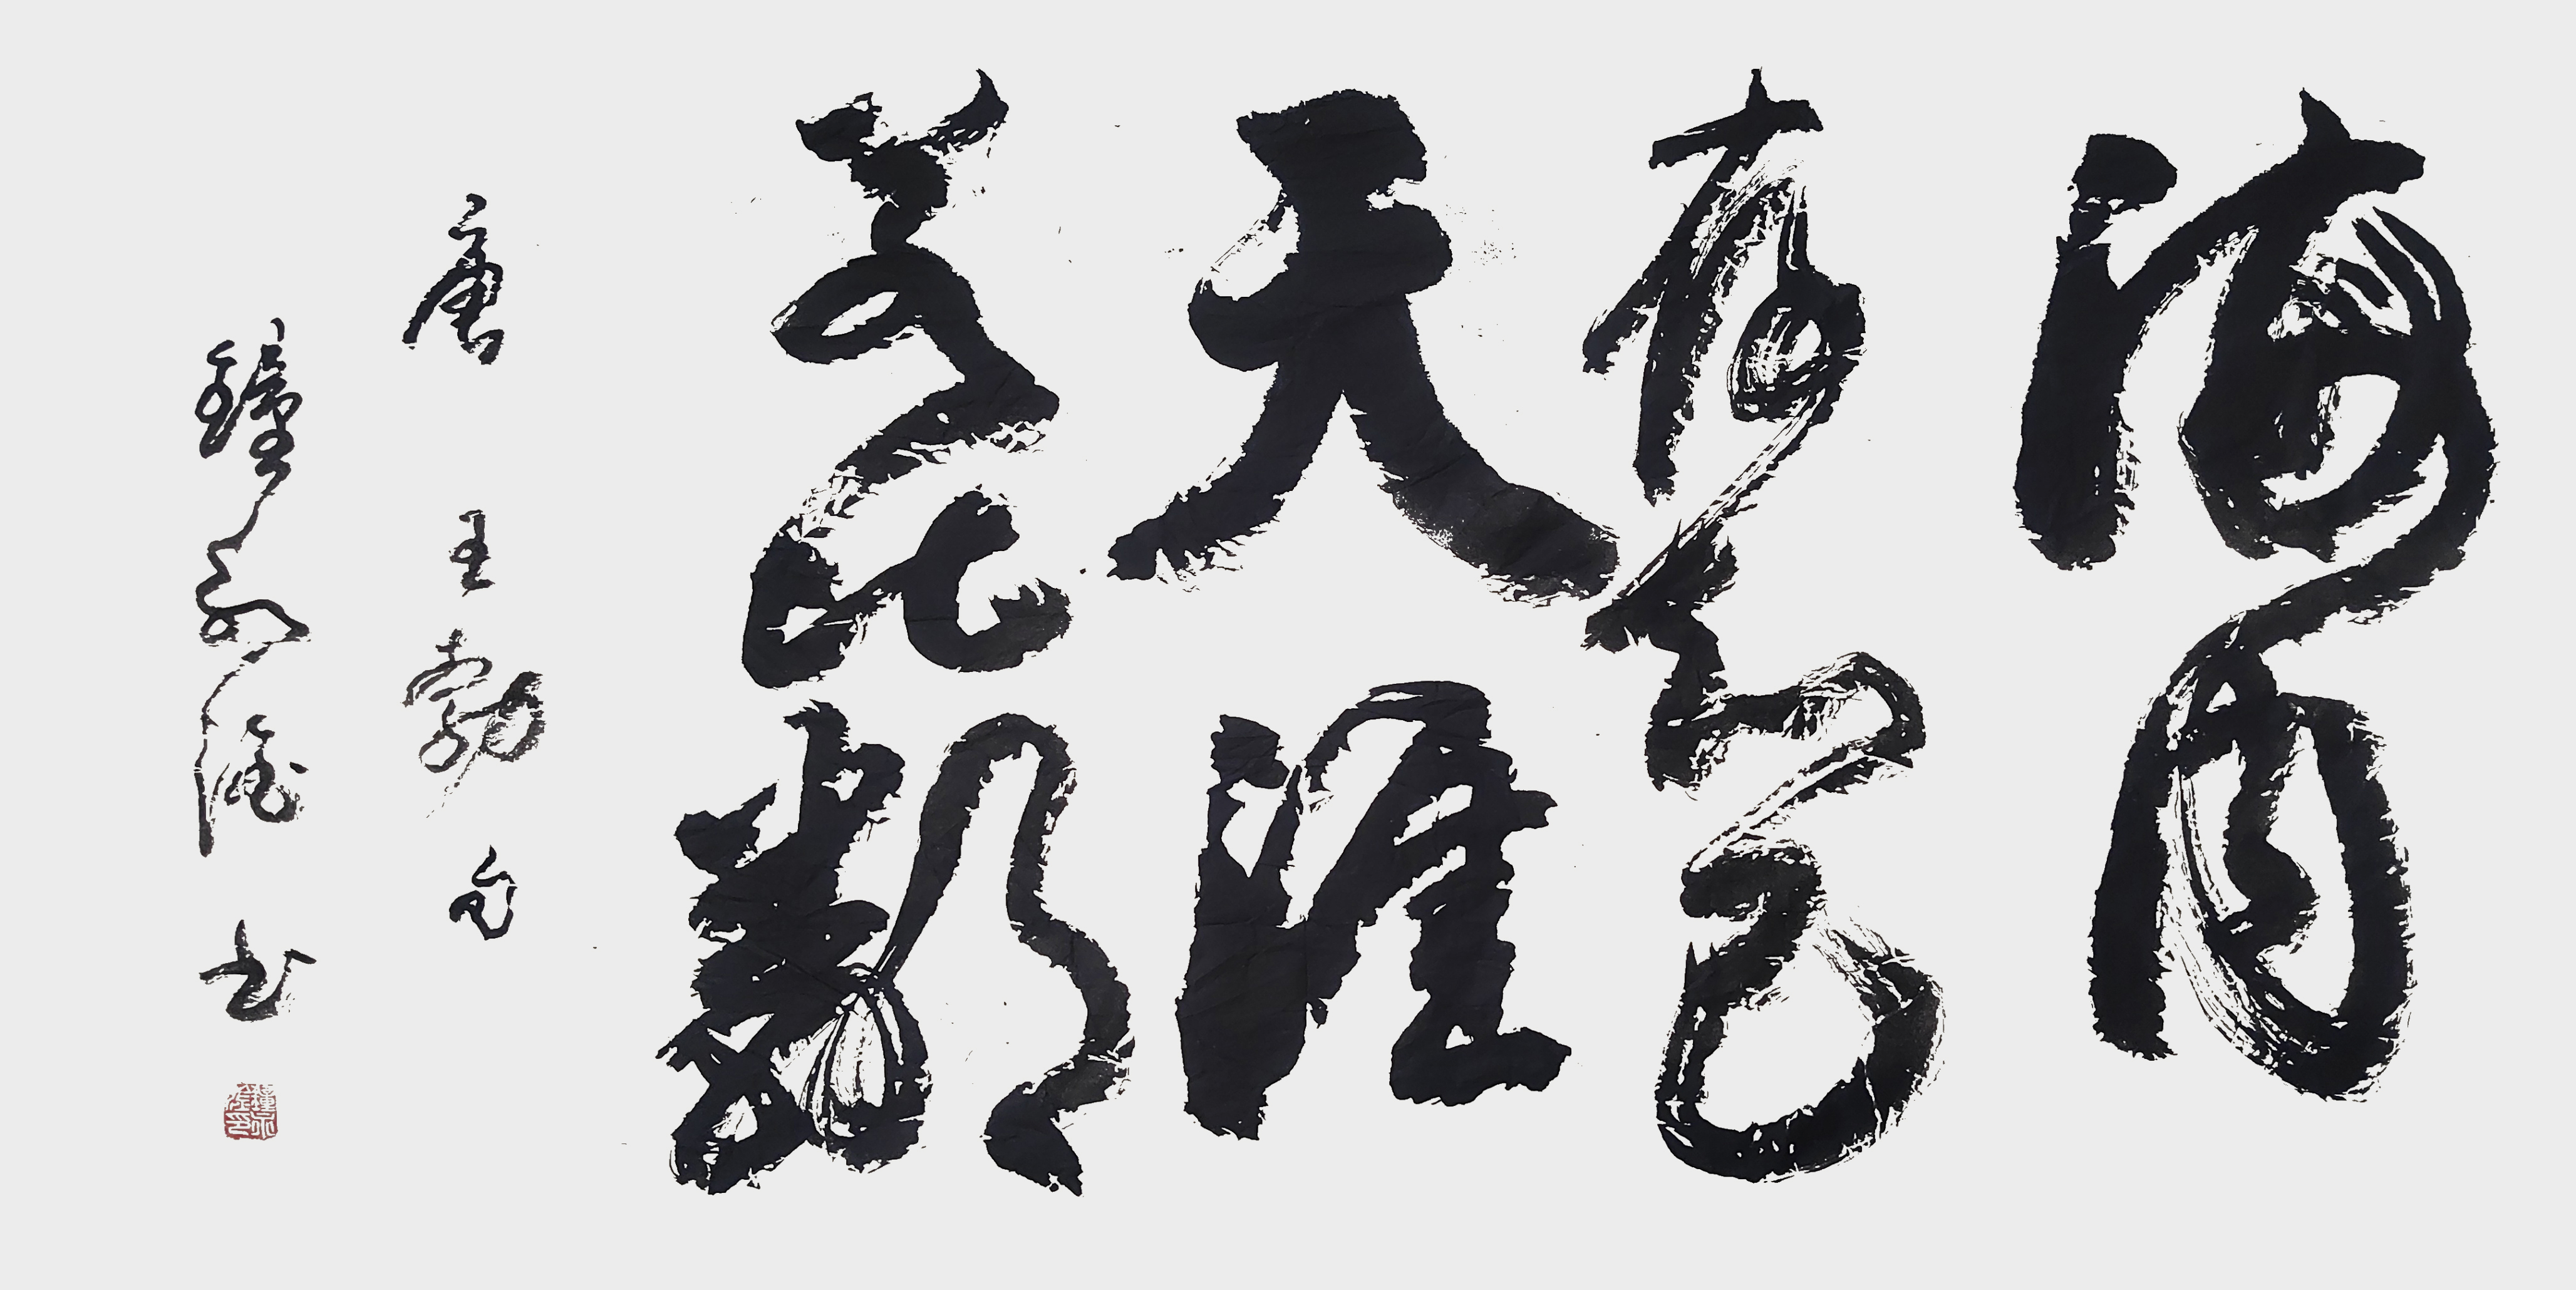 海内
存知己
天涯
若比鄰
唐王勃句
鐘书